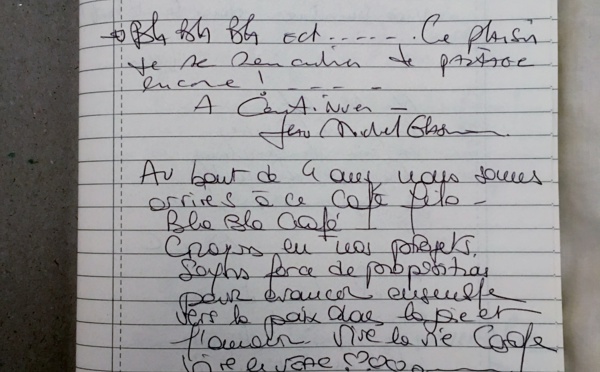 Bla Bla Bla ect ..... Ce plaisir
de se rencontrer de partage
encore ! ----
A Continuer -
Jean Michel
Au bout de 4 ans nous sommes
arrivés à ce Café
Bla Bla Café
Croyons en nos projets.
Soyons force de proposition
pour avancer ensemble
vers la paix dans la joie et
l'amour Vive la vie